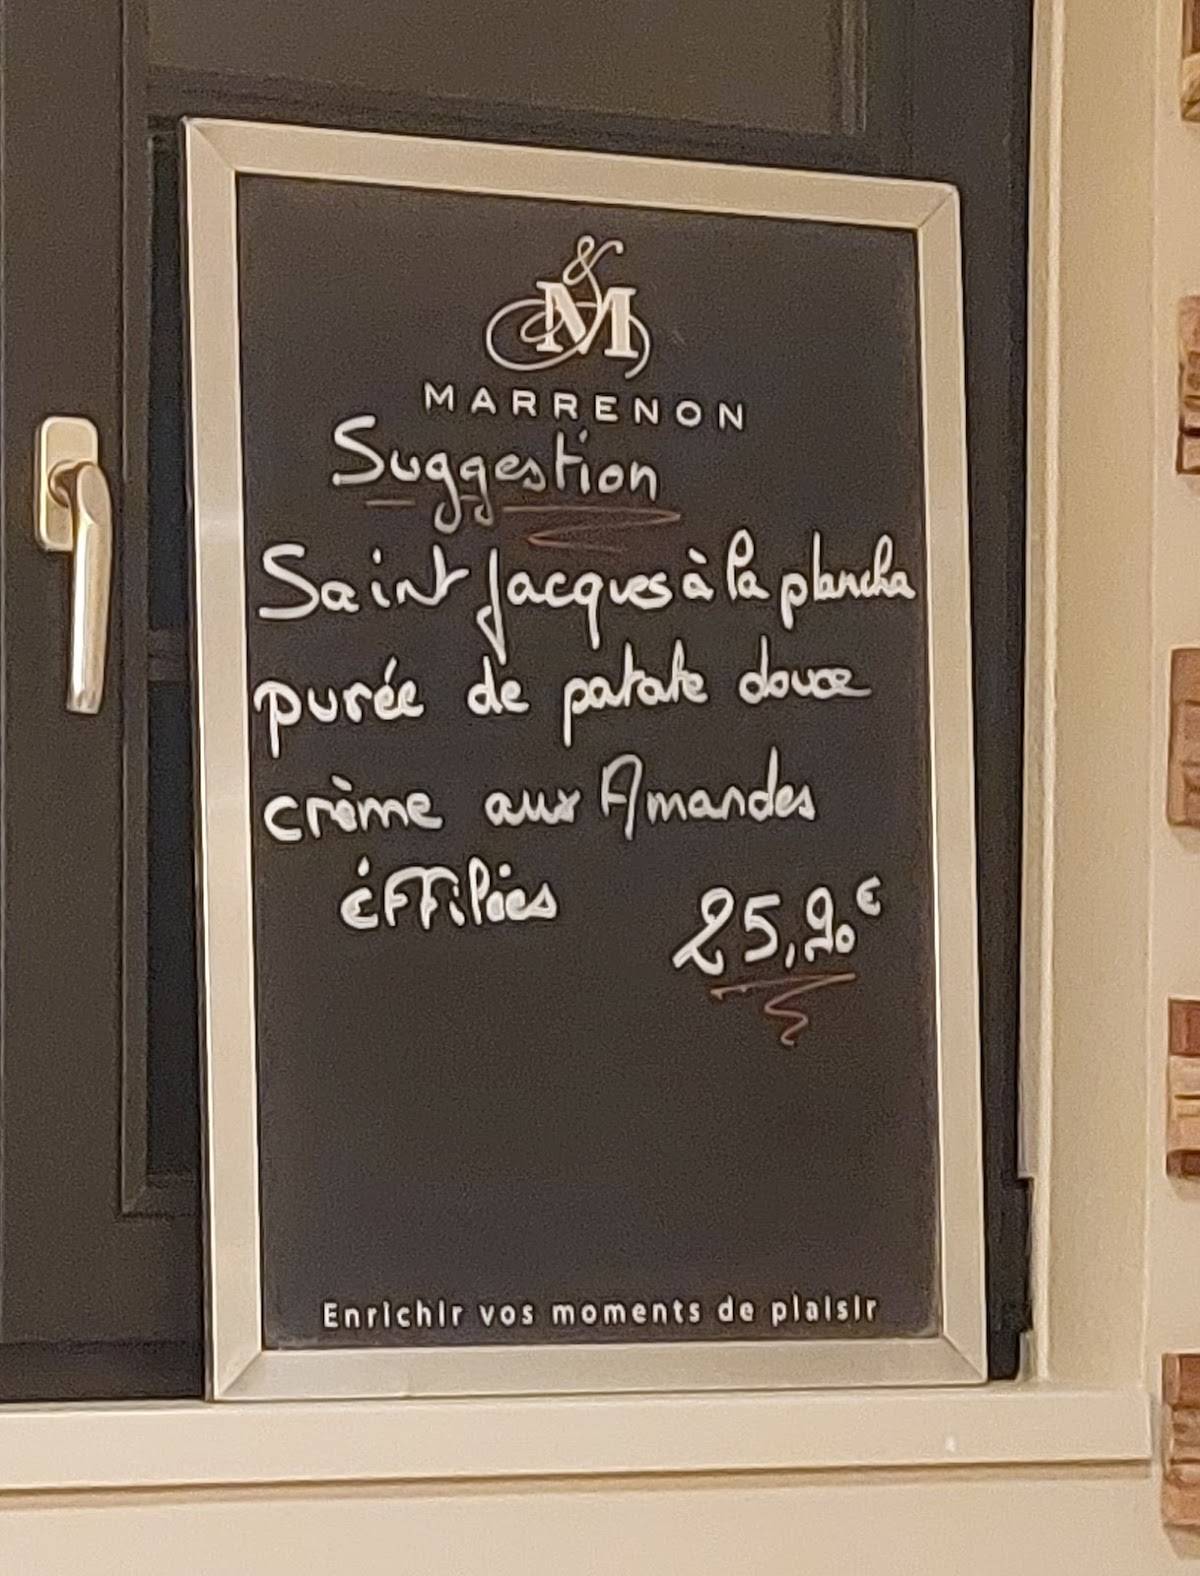 &M
MARRENON
Suggestion
Saint Jacques à la plancha
purée de patate douce
crème aux Amandes
éffilées
25,90€
Enrichir vos moments de plaisir